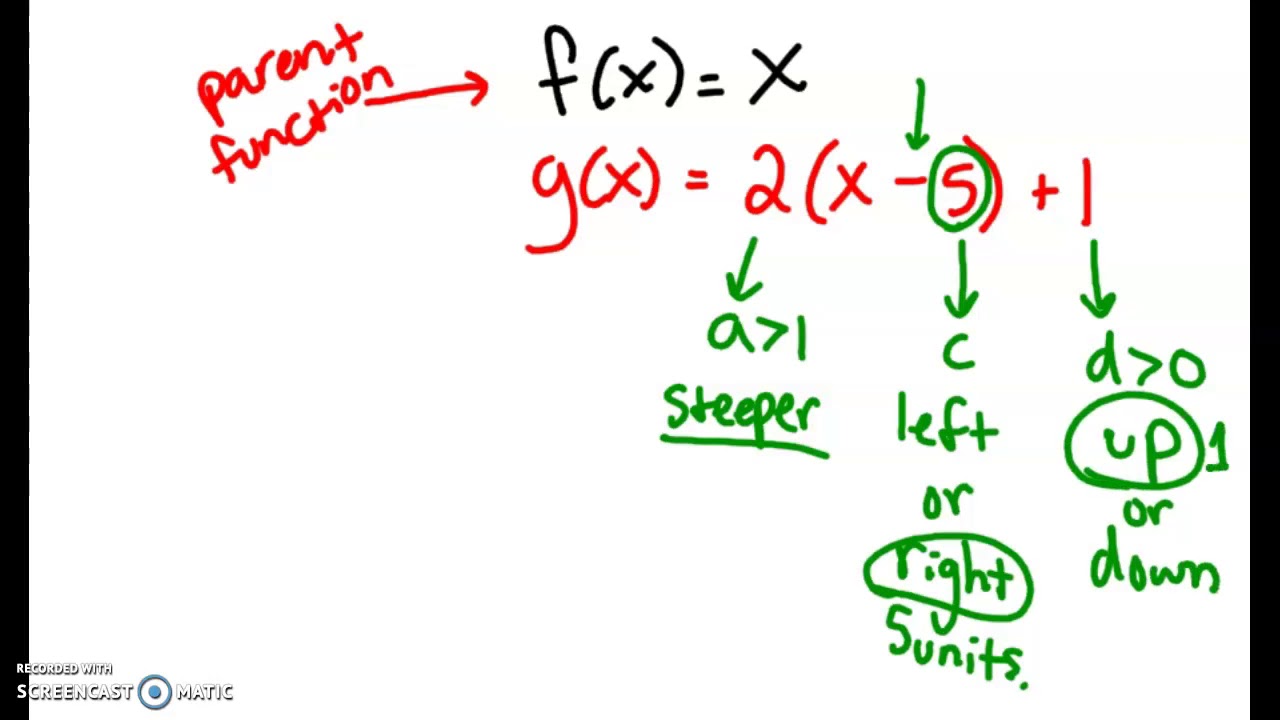 parent
function
f(x) = x
g(x) = 2(x - 5) + 1
a>1
steeper
c
left
or
right
5 units.
d>0
up 1
or
down
RECORDED WITH
SCREENCAST MATIC